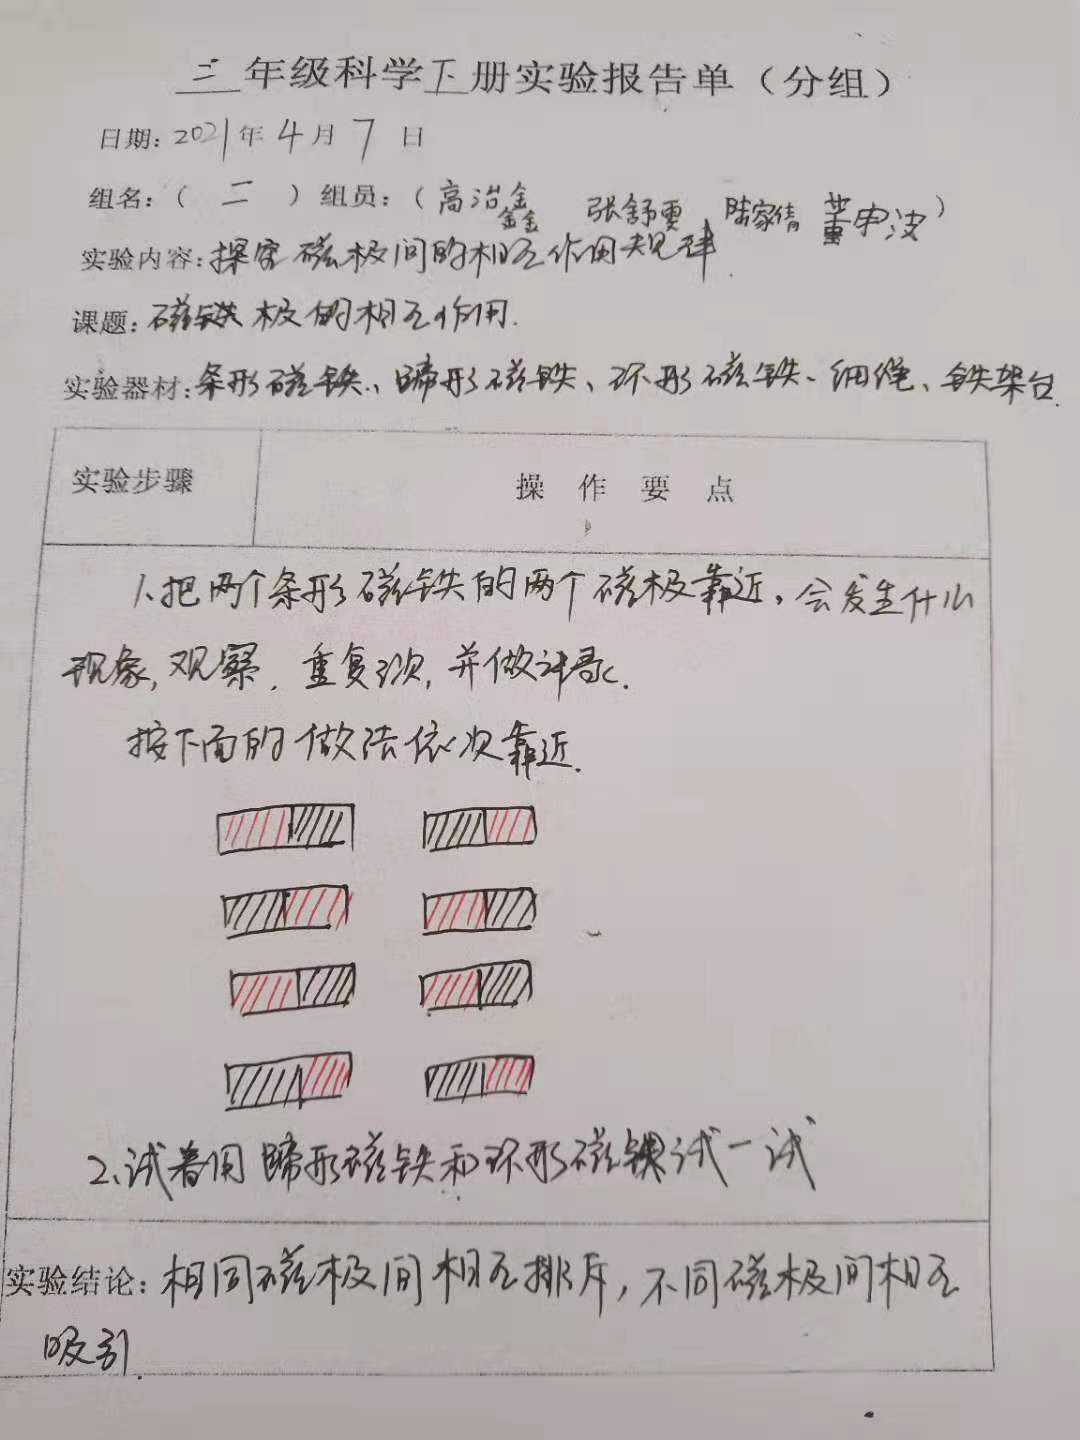 三年级科学下册实验报告单（分组）
日期：2021年4月7日
组名：（ 二 ）组员：（高冶鑫 张舒雯 陆家倩 董申波）
实验内容：探究磁极间的相互作用规律.
课题：磁铁极的相互作用.
实验器材：条形磁铁、蹄形磁铁、环形磁铁、细绳、铁架台.
实验步骤 操作要点
1、把两个条形磁铁的两个磁极靠近，会发生什么
现象，观察，重复3次，并做记录.
按下面的做法依次靠近.
2、试着用蹄形磁铁和环形磁铁试一试
实验结论：相同磁极间相互排斥，不同磁极间相互
吸引.